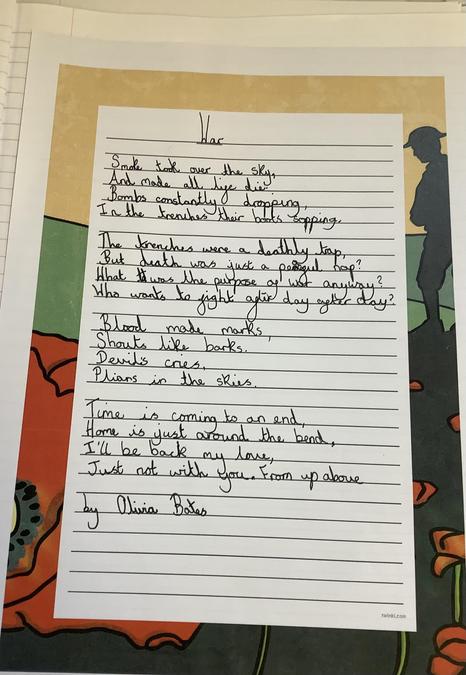 War
Smoke took over the sky,
And made all life die
Bombs constantly dropping,
In the trenches their boots sopping.
The trenches were a deathly trap,
But death was just a peaceful nap?
What was the purpose of war anyway?
Who wants to fight day after day?
Blood made marks,
Shouts like barks.
Devil's cries,
Plians in the skies.
Time is coming to an end,
Home is just around the bend,
I'll be back my love,
Just not with you. From up above
by Olivia Bates
twinkl.com